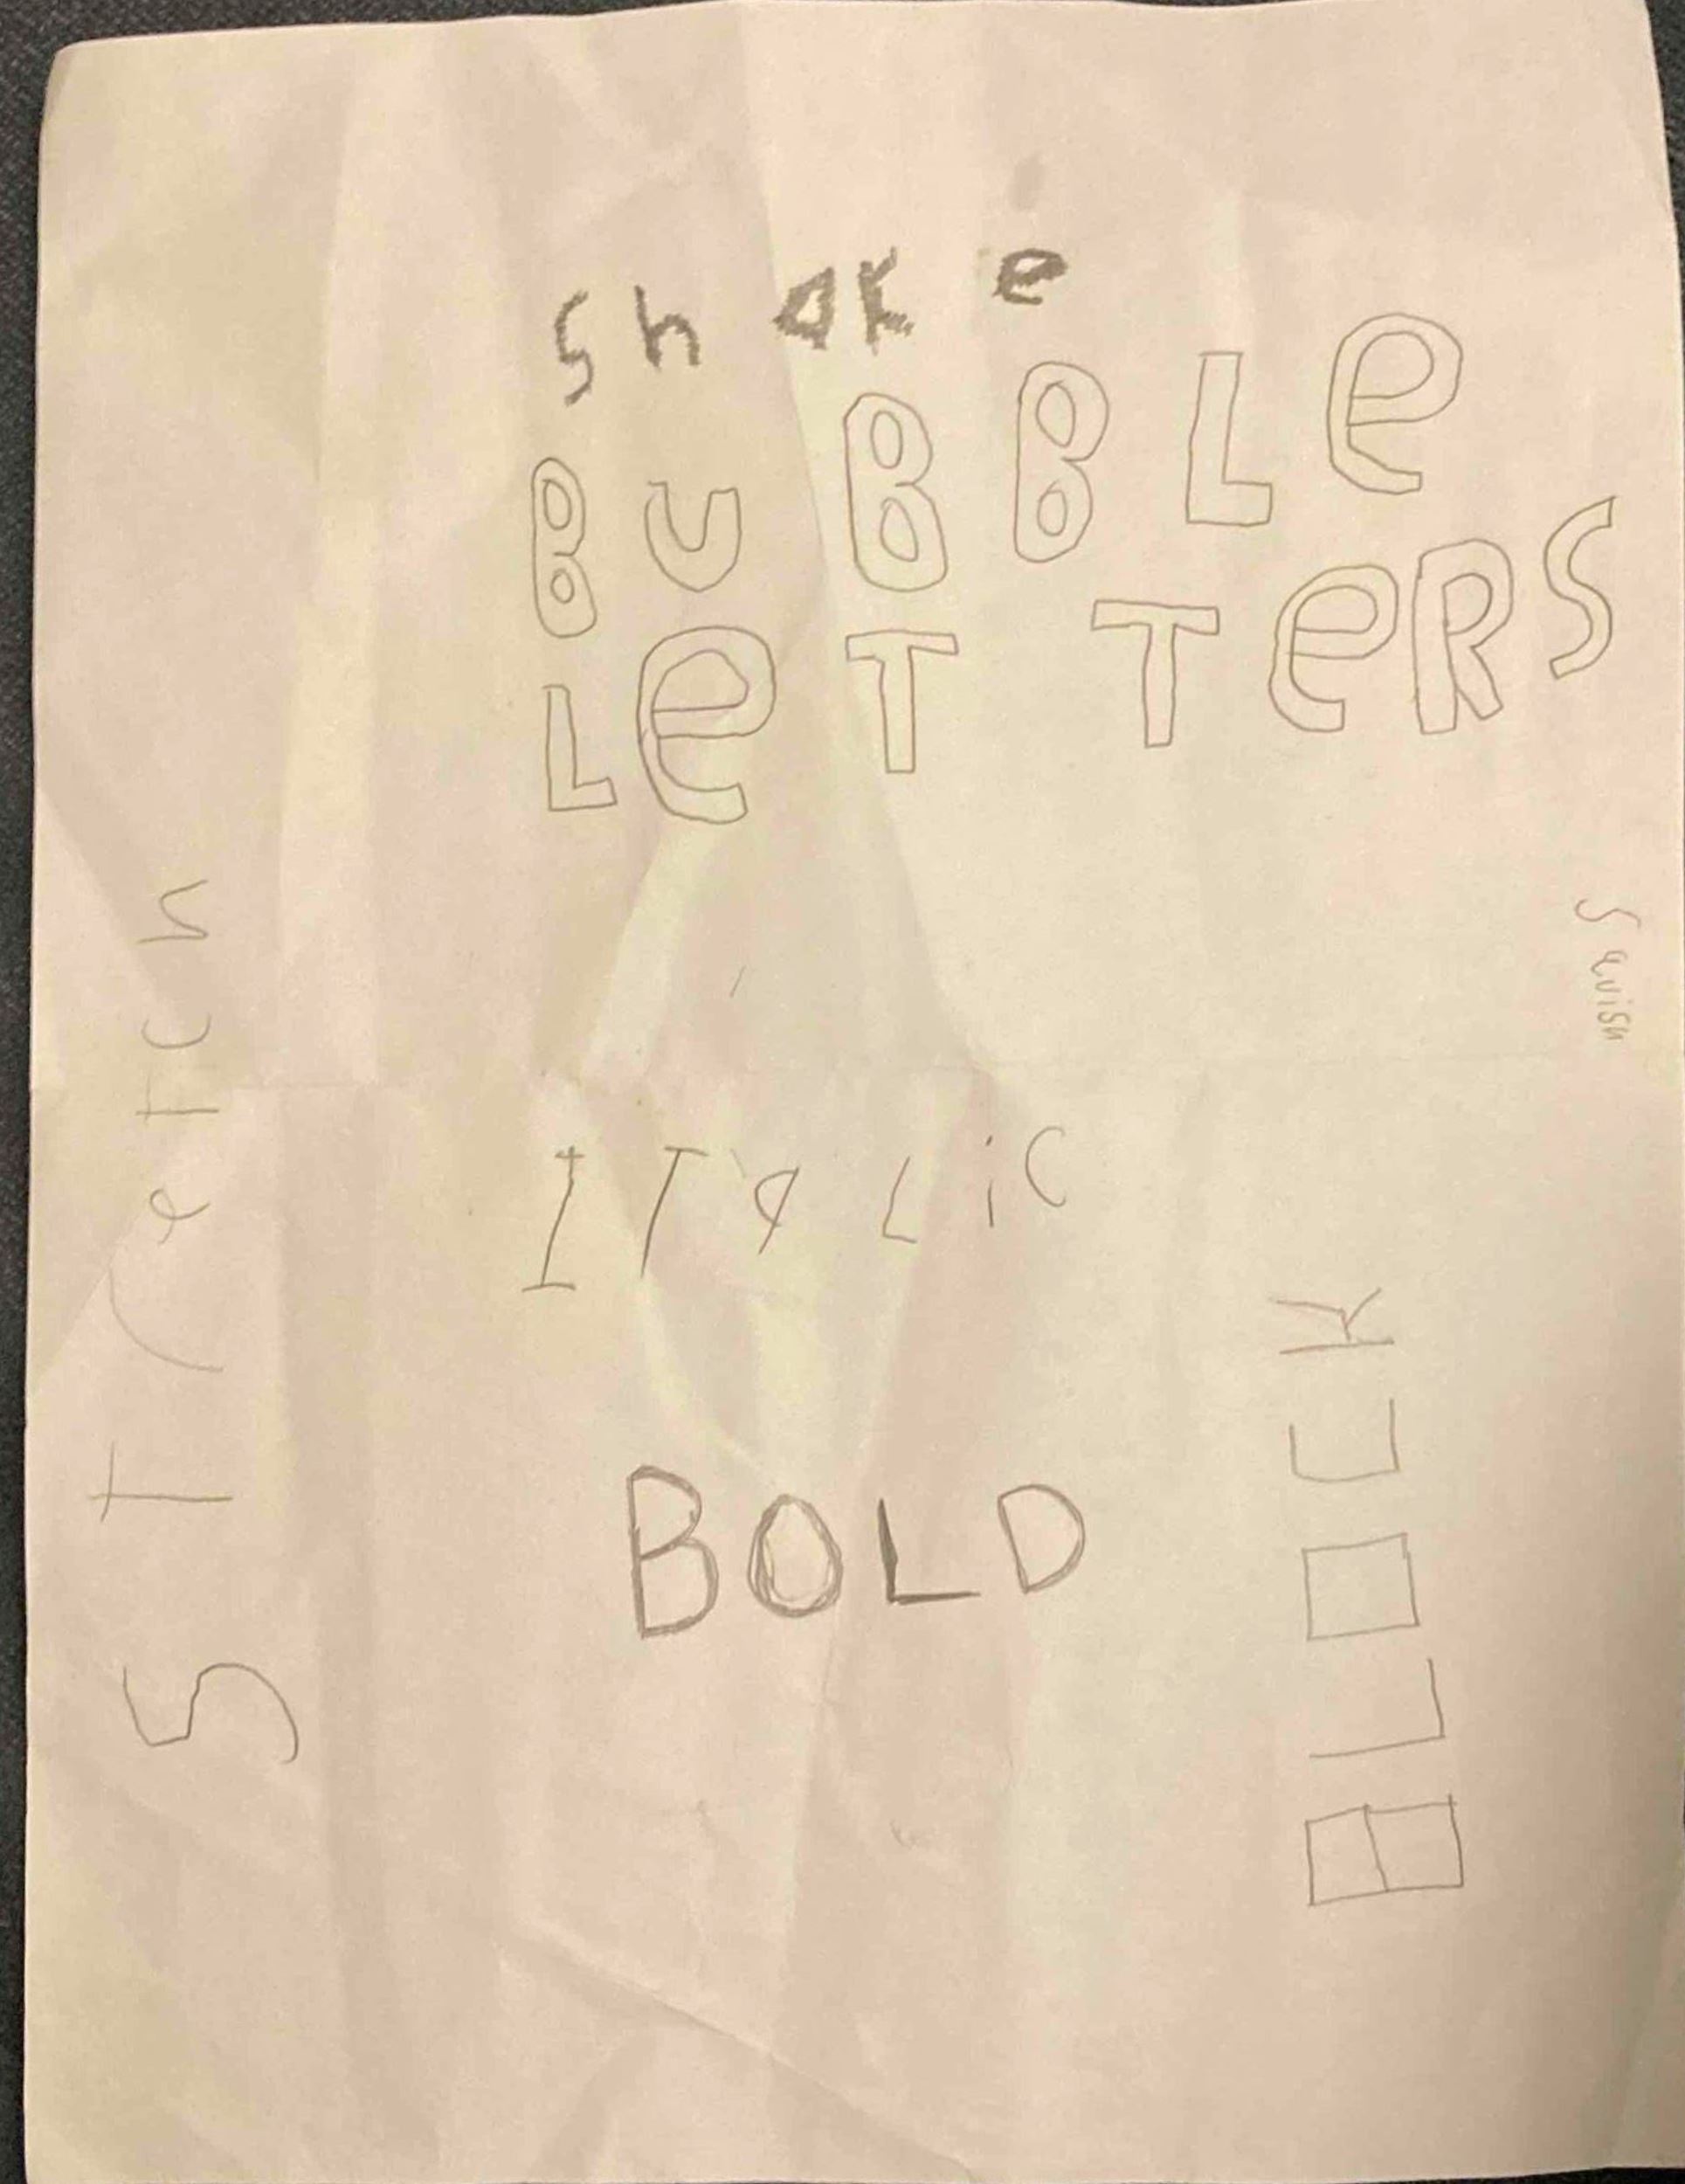 shake
BUBBLe
LeTTeRS
STreTCh
ITaLiC
BOLD
BLOCK